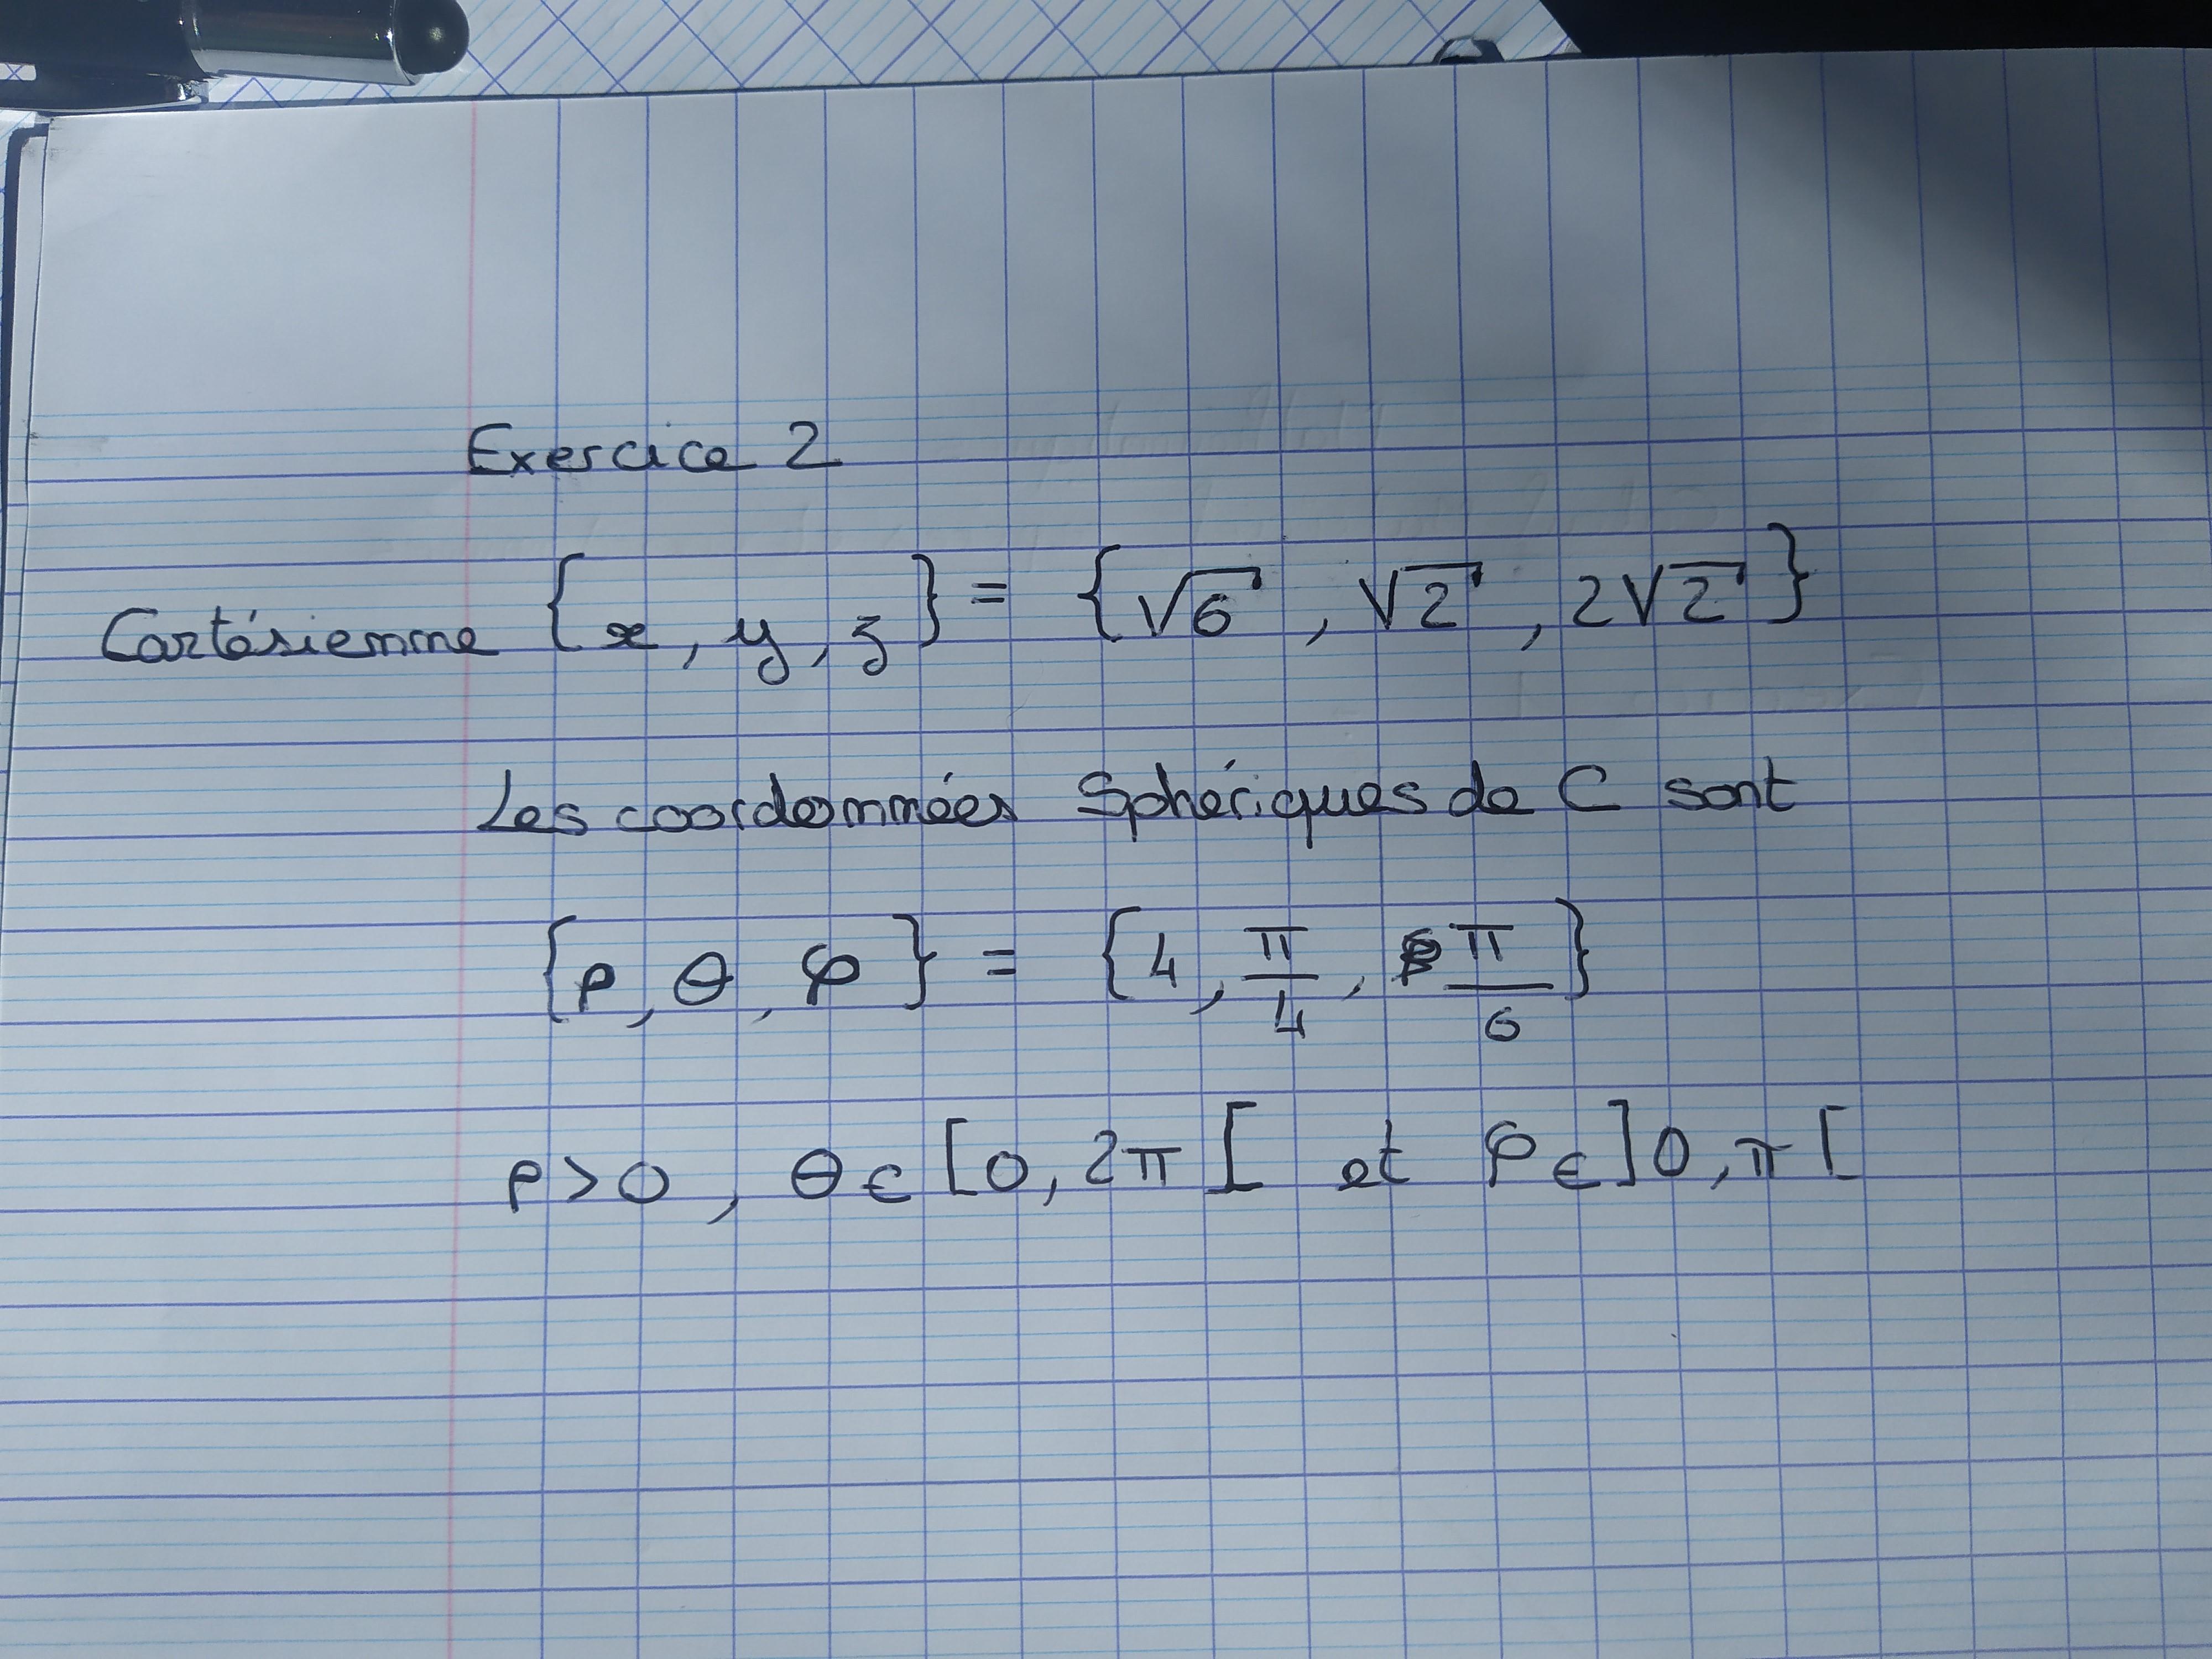 Exercice 2
Cartésienne {x, y, z} = {√6, √2, 2√2}
Les coordonnées Sphériques de C sont
{ρ, θ, φ} = {4, π/4, π/6}
ρ > 0, θ ∈ [0, 2π[ et φ ∈ ]0, π[